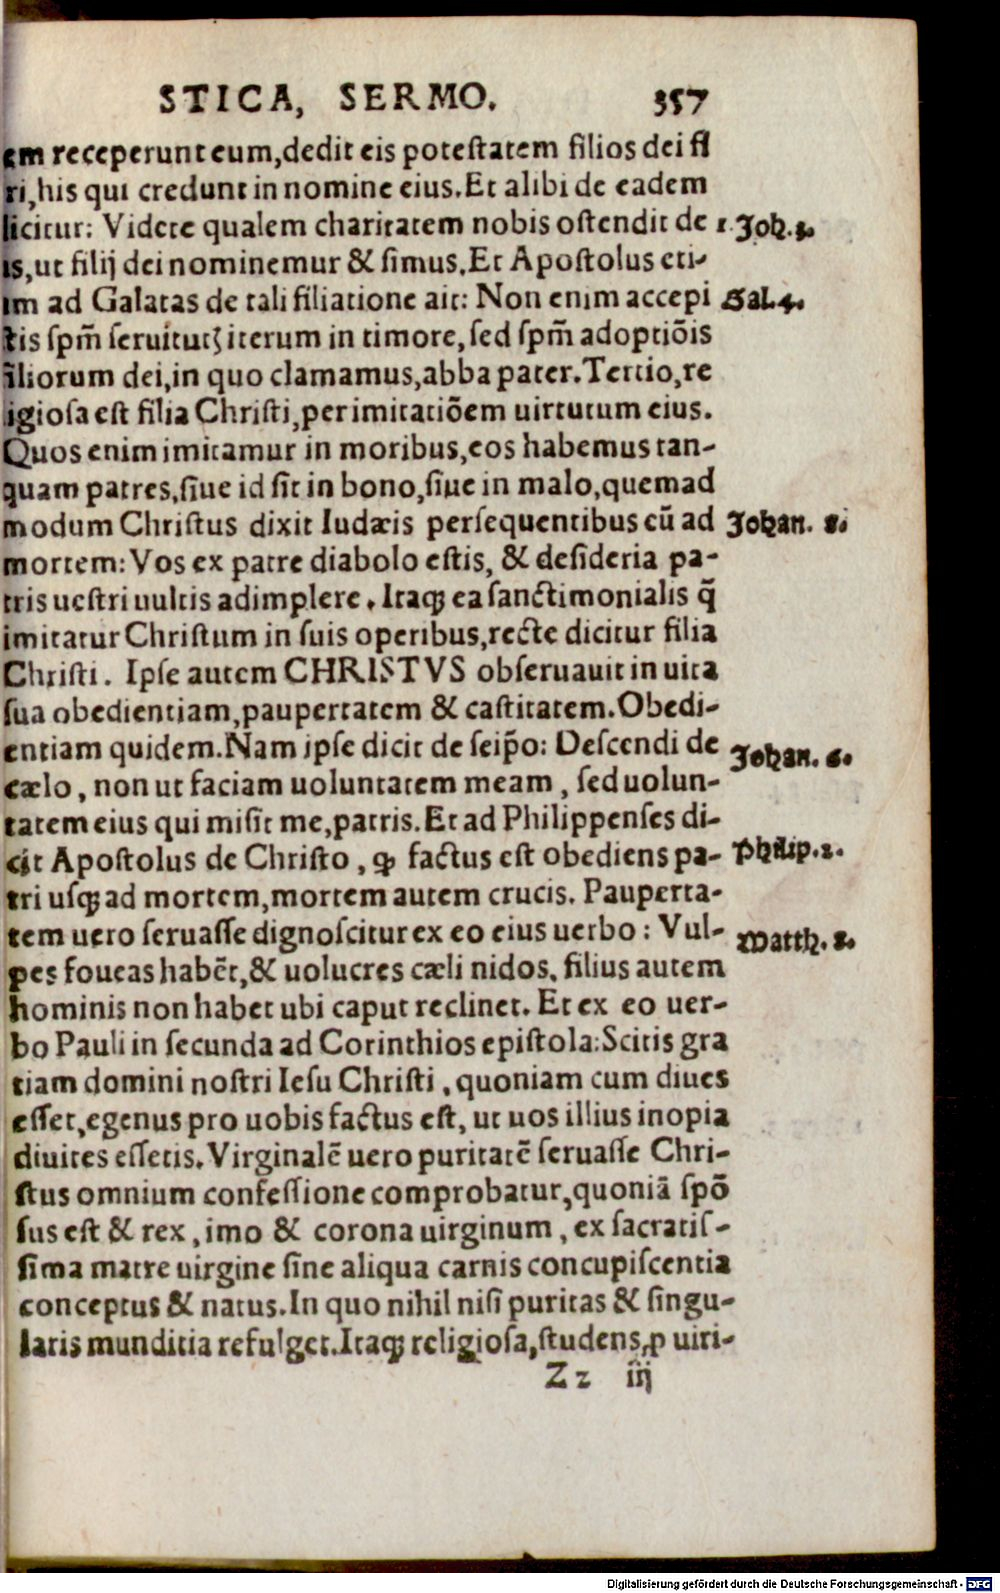 STICA, SERMO. 357
em receperunt eum, dedit eis potestatem filios dei fi
ri, his qui credunt in nomine eius. Et alibi de eadem
licitur: Videte qualem charitatem nobis ostendit de 1. Joh. 3.
is, ut filij dei nominemur & simus. Et Apostolus eti-
im ad Galatas de tali filiatione ait: Non enim accepi Gal. 4.
stis spm̃ seruitutꝭ iterum in timore, sed spm̃ adoptiõis
iliorum dei, in quo clamamus, abba pater. Tertio, re
igiosa est filia Christi, per imitatiõem uirtutum eius.
Quos enim imitamur in moribus, eos habemus tan-
quam patres, siue id sit in bono, siue in malo, quemad
modum Christus dixit Iudæis persequentibus eũ ad Johan. 8.
mortem: Vos ex patre diabolo estis, & desideria pa-
tris uestri uultis adimplere. Itaqꝫ ea sanctimonialis q̃
imitatur Christum in suis operibus, recte dicitur filia
Christi. Ipse autem CHRISTVS obseruauit in uita
sua obedientiam, paupertatem & castitatem. Obedi-
entiam quidem. Nam ipse dicit de seip̃o: Descendi de Johan. 6.
cælo, non ut faciam uoluntatem meam, sed uolun-
tatem eius qui misit me, patris. Et ad Philippenses di-
cit Apostolus de Christo, ꝙ factus est obediens pa- Philip. 2.
tri usqꝫ ad mortem, mortem autem crucis. Pauperta-
tem uero seruasse dignoscitur ex eo eius uerbo: Vul- Matth. 8.
pes foueas habẽt, & uolucres cæli nidos. filius autem
hominis non habet ubi caput reclinet. Et ex eo uer-
bo Pauli in secunda ad Corinthios epistola: Scitis gra
tiam domini nostri Iesu Christi, quoniam cum diues
esset, egenus pro uobis factus est, ut uos illius inopia
diuites essetis. Virginalẽ uero puritatẽ seruasse Chri-
stus omnium confessione comprobatur, quoniã spõ
sus est & rex, imo & corona uirginum, ex sacratis-
sima matre uirgine sine aliqua carnis concupiscentia
conceptus & natus. In quo nihil nisi puritas & singu-
laris munditia refulget. Itaqꝫ religiosa, studens ꝓ uiri-
Zz iij
Digitalisierung gefördert durch die Deutsche Forschungsgemeinschaft - DFG